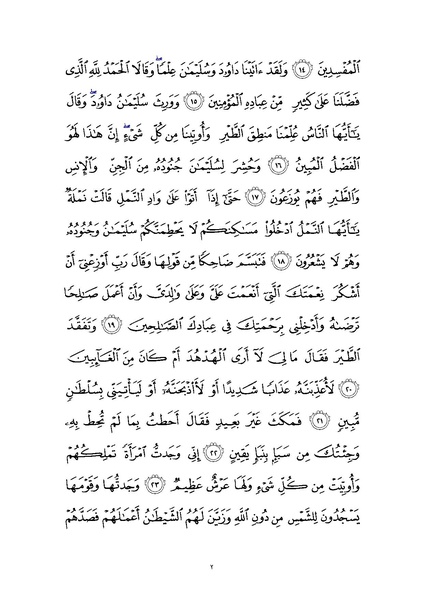 ٱلْمُفْسِدِينَ ١٤ وَلَقَدْ ءَاتَيْنَا دَاوُۥدَ وَسُلَيْمَٰنَ عِلْمًاۖ وَقَالَا ٱلْحَمْدُ لِلَّهِ ٱلَّذِى
فَضَّلَنَا عَلَىٰ كَثِيرٍ مِّنْ عِبَادِهِ ٱلْمُؤْمِنِينَ ١٥ وَوَرِثَ سُلَيْمَٰنُ دَاوُۥدَۖ وَقَالَ
يَٰٓأَيُّهَا ٱلنَّاسُ عُلِّمْنَا مَنطِقَ ٱلطَّيْرِ وَأُوتِينَا مِن كُلِّ شَىْءٍۖ إِنَّ هَٰذَا لَهُوَ
ٱلْفَضْلُ ٱلْمُبِينُ ١٦ وَحُشِرَ لِسُلَيْمَٰنَ جُنُودُهُۥ مِنَ ٱلْجِنِّ وَٱلْإِنسِ
وَٱلطَّيْرِ فَهُمْ يُوزَعُونَ ١٧ حَتَّىٰٓ إِذَآ أَتَوْا۟ عَلَىٰ وَادِ ٱلنَّمْلِ قَالَتْ نَمْلَةٌ
يَٰٓأَيُّهَا ٱلنَّمْلُ ٱدْخُلُوا۟ مَسَٰكِنَكُمْ لَا يَحْطِمَنَّكُمْ سُلَيْمَٰنُ وَجُنُودُهُۥ
وَهُمْ لَا يَشْعُرُونَ ١٨ فَتَبَسَّمَ ضَاحِكًا مِّن قَوْلِهَا وَقَالَ رَبِّ أَوْزِعْنِىٓ أَنْ
أَشْكُرَ نِعْمَتَكَ ٱلَّتِىٓ أَنْعَمْتَ عَلَىَّ وَعَلَىٰ وَٰلِدَىَّ وَأَنْ أَعْمَلَ صَٰلِحًا
تَرْضَىٰهُ وَأَدْخِلْنِى بِرَحْمَتِكَ فِى عِبَادِكَ ٱلصَّٰلِحِينَ ١٩ وَتَفَقَّدَ
ٱلطَّيْرَ فَقَالَ مَا لِىَ لَآ أَرَى ٱلْهُدْهُدَ أَمْ كَانَ مِنَ ٱلْغَآئِبِينَ
٢٠ لَأُعَذِّبَنَّهُۥ عَذَابًا شَدِيدًا أَوْ لَأَا۟ذْبَحَنَّهُۥٓ أَوْ لَيَأْتِيَنِّى بِسُلْطَٰنٍ
مُّبِينٍ ٢١ فَمَكَثَ غَيْرَ بَعِيدٍ فَقَالَ أَحَطتُ بِمَا لَمْ تُحِطْ بِهِۦ
وَجِئْتُكَ مِن سَبَإٍۭ بِنَبَإٍ يَقِينٍ ٢٢ إِنِّى وَجَدتُّ ٱمْرَأَةً تَمْلِكُهُمْ
وَأُوتِيَتْ مِن كُلِّ شَىْءٍ وَلَهَا عَرْشٌ عَظِيمٌ ٢٣ وَجَدتُّهَا وَقَوْمَهَا
يَسْجُدُونَ لِلشَّمْسِ مِن دُونِ ٱللَّهِ وَزَيَّنَ لَهُمُ ٱلشَّيْطَٰنُ أَعْمَٰلَهُمْ فَصَدَّهُمْ
٢